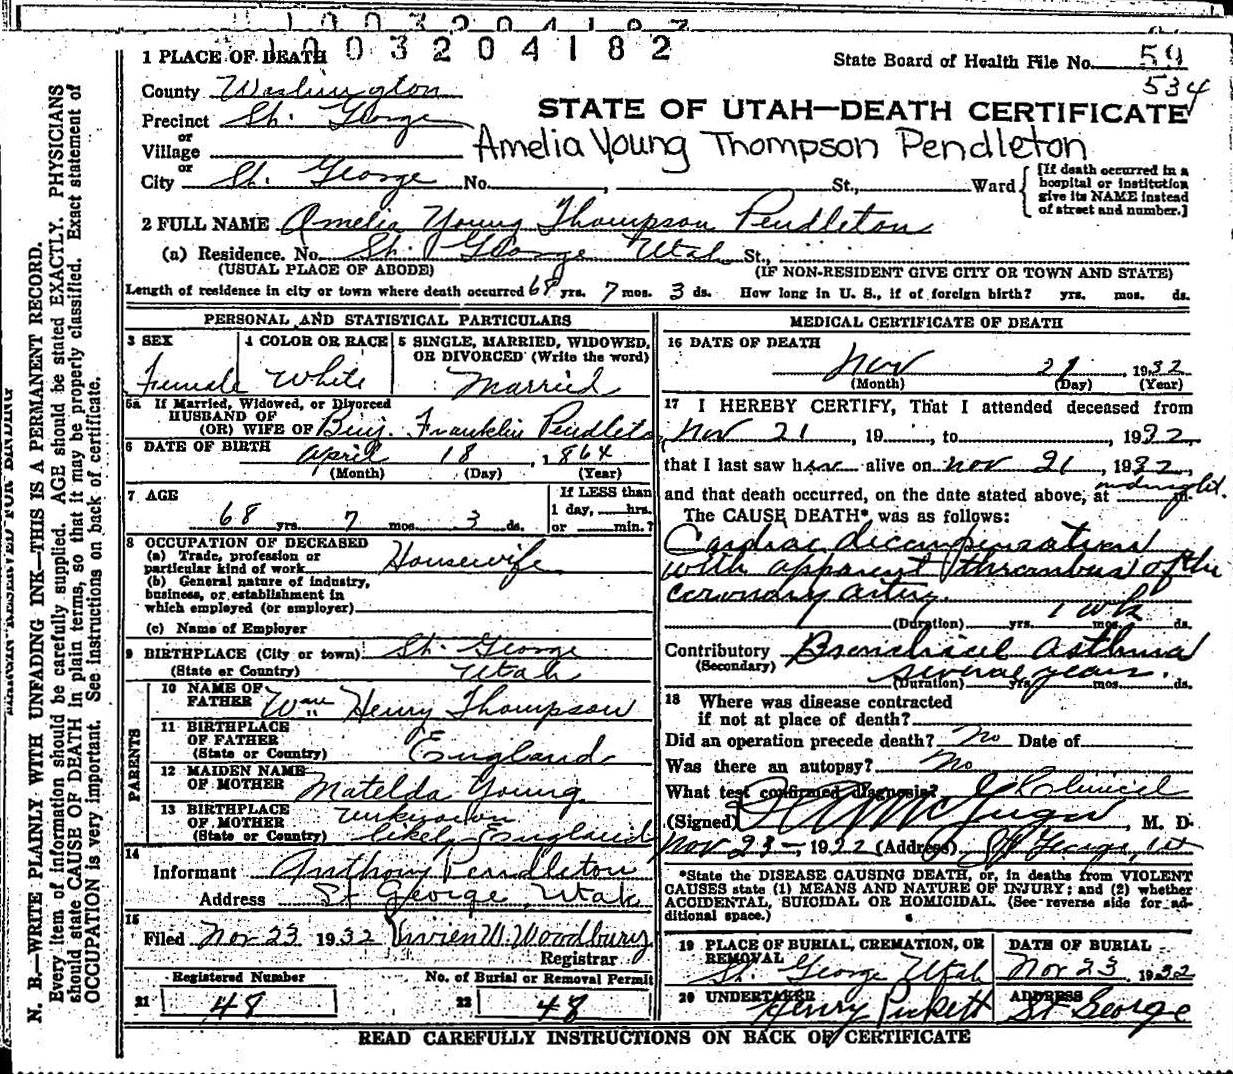 1003204182
1 PLACE OF DEATH
State Board of Health File No. 59
534
County Washington
STATE OF UTAH—DEATH CERTIFICATE
Precinct St. George
or
Village
Amelia Young Thompson Pendleton
or
City St. George No. , St., Ward
[If death occurred in a
hospital or institution
give its NAME instead
of street and number.]
2 FULL NAME Amelia Young Thompson Pendleton
(a) Residence. No. St. George Utah St.,
(USUAL PLACE OF ABODE) (IF NON-RESIDENT GIVE CITY OR TOWN AND STATE)
Length of residence in city or town where death occurred 68 yrs. 7 mos. 3 ds. How long in U. S., if of foreign birth? yrs. mos. ds.
PERSONAL AND STATISTICAL PARTICULARS
3 SEX 4 COLOR OR RACE 5 SINGLE, MARRIED, WIDOWED,
OR DIVORCED (Write the word)
Female White Married
5a If Married, Widowed, or Divorced
HUSBAND OF
(OR) WIFE OF Benj. Franklin Pendleton
6 DATE OF BIRTH April 18, 1864
(Month) (Day) (Year)
7 AGE
68 yrs. 7 mos. 3 ds.
If LESS than
1 day, hrs.
or min.?
8 OCCUPATION OF DECEASED
(a) Trade, profession or
particular kind of work Housewife
(b) General nature of industry,
business, or establishment in
which employed (or employer)
(c) Name of Employer
9 BIRTHPLACE (City or town) St. George
(State or Country) Utah
PARENTS
10 NAME OF
FATHER Wm Henry Thompson
11 BIRTHPLACE
OF FATHER
(State or Country) England
12 MAIDEN NAME
OF MOTHER Matelda Young
13 BIRTHPLACE
OF MOTHER Unknown
(State or Country) likely England
14
Informant Anthony Pendleton
Address St George, Utah
15
Filed Nov 23 1932 Vivien W. Woodbury
Registrar
Registered Number No. of Burial or Removal Permit
21 48 22 48
MEDICAL CERTIFICATE OF DEATH
16 DATE OF DEATH
Nov 21, 1932
(Month) (Day) (Year)
17 I HEREBY CERTIFY, That I attended deceased from
Nov 21, 19 , to 1932,
that I last saw her alive on Nov 21, 1932,
and that death occurred, on the date stated above, at midnight m.
The CAUSE DEATH* was as follows:
Cardiac decompensation
with apparent thrombus of the
coronary artery.
1 wk
(Duration) yrs. mos. ds.
Contributory Bronchical Asthma
(Secondary) several years.
(Duration) yrs. mos. ds.
18 Where was disease contracted
if not at place of death?
Did an operation precede death? No Date of
Was there an autopsy? No
What test confirmed diagnosis? Clinical
(Signed) , M. D.
Nov 23 - 1932 (Address) St George, Ut
*State the DISEASE CAUSING DEATH, or, in deaths from VIOLENT
CAUSES state (1) MEANS AND NATURE OF INJURY; and (2) whether
ACCIDENTAL, SUICIDAL OR HOMICIDAL. (See reverse side for ad-
ditional space.)
19 PLACE OF BURIAL, CREMATION, OR
REMOVAL
St. George Utah
DATE OF BURIAL
Nov 23 1932
20 UNDERTAKER
Henry Pickett
ADDRESS
St George
READ CAREFULLY INSTRUCTIONS ON BACK OF CERTIFICATE
N. B.—WRITE PLAINLY WITH UNFADING INK—THIS IS A PERMANENT RECORD.
Every item of information should be carefully supplied. AGE should be stated EXACTLY. PHYSICIANS
should state CAUSE OF DEATH in plain terms, so that it may be properly classified. Exact statement of
OCCUPATION is very important. See instructions on back of certificate.